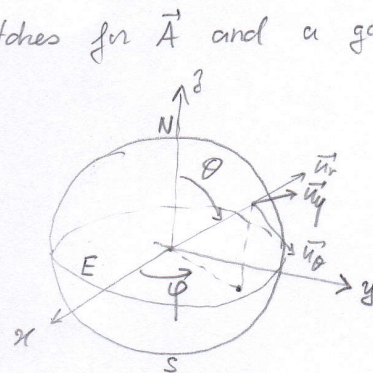 tches for A⃗ and a ga
z
N
θ
u⃗r
u⃗φ
u⃗θ
E
φ
y
x
S